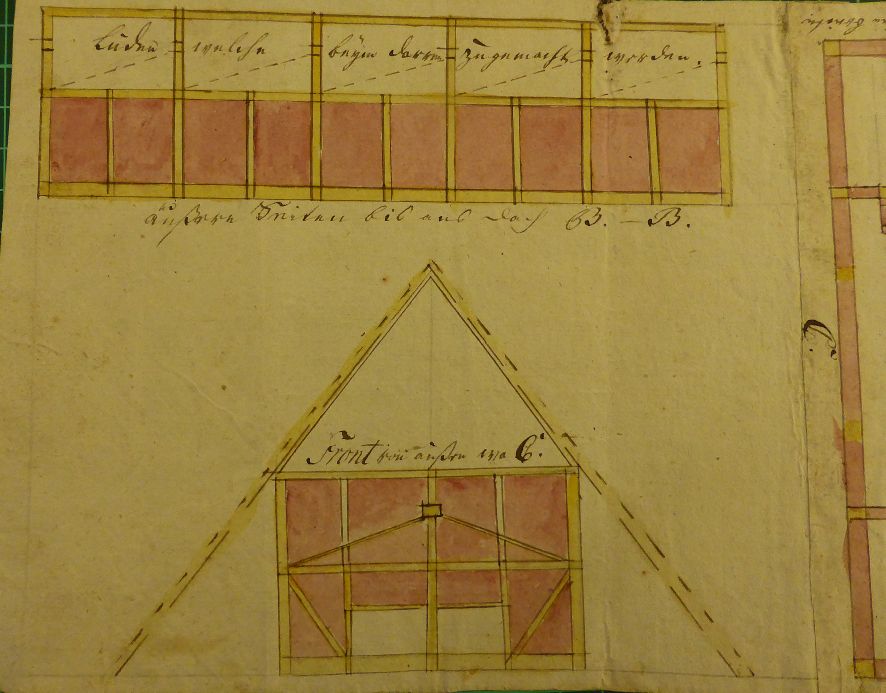 Luden welche beÿm darren zugemacht werden.
äußere Seiten bis ans Dach B. – B.
Front von außen wo C.
C.